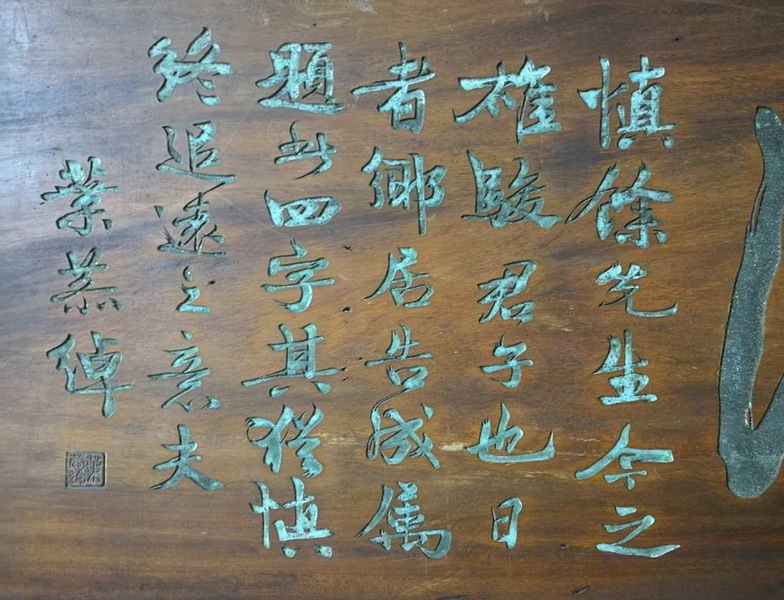 慎餘先生今之
雄駿君子也日
者鄉居告成属
題此四字其猶慎
終追遠之意夫
葉恭綽